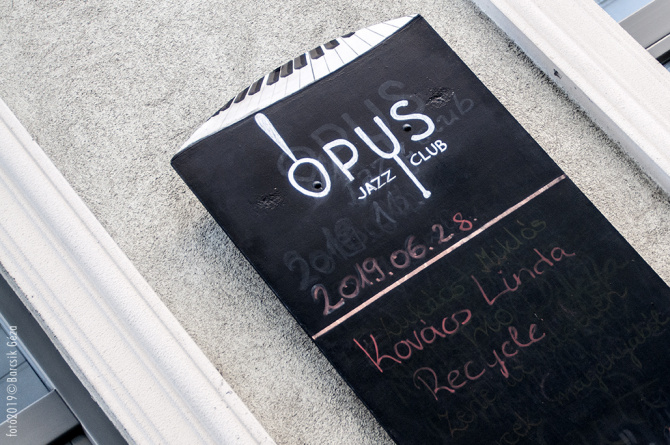 OPUS
JAZZ CLUB
2019.06.28.
Kovács Linda
Recycle
foto2019 © Barcsik Géza